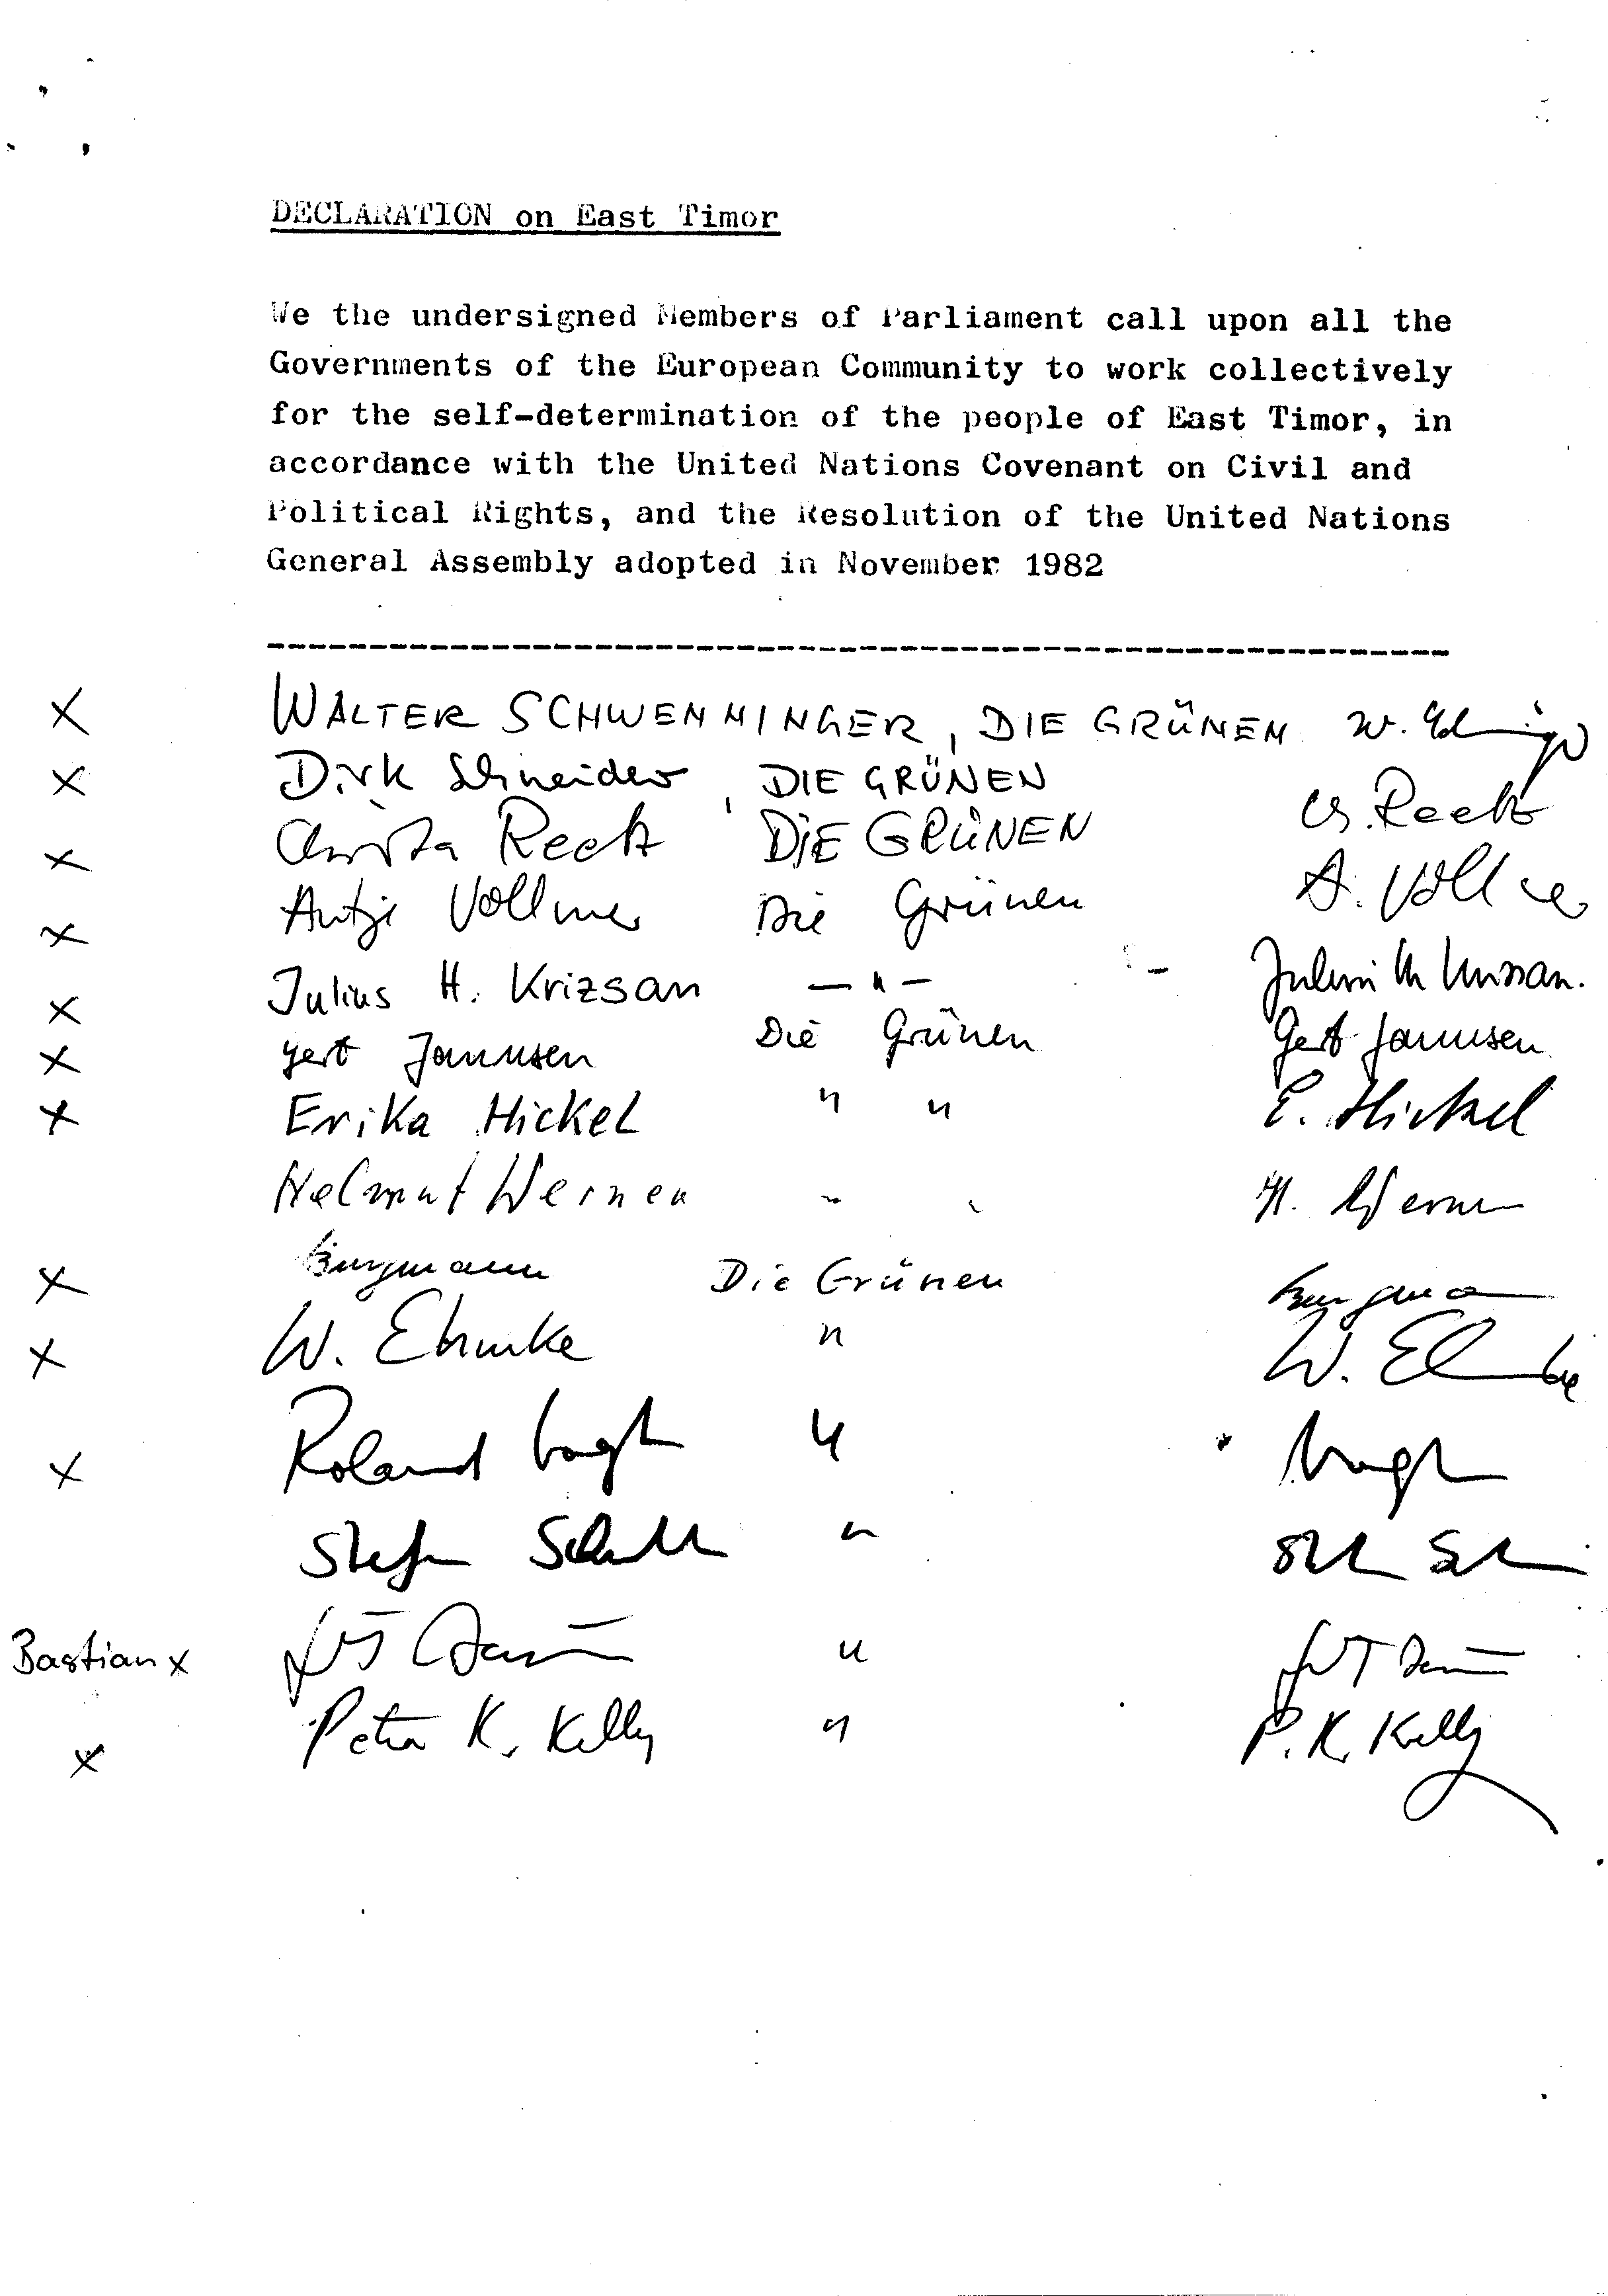 DECLARATION on East Timor
We the undersigned Members of Parliament call upon all the
Governments of the European Community to work collectively
for the self-determination of the people of East Timor, in
accordance with the United Nations Covenant on Civil and
Political Rights, and the Resolution of the United Nations
General Assembly adopted in November 1982
X WALTER SCHWENNINGER, DIE GRÜNEN W.
X Dirk Schneider, DIE GRÜNEN
X Christa Reetz DIE GRÜNEN Ch. Reetz
X Antje Vollmer Die Grünen A. Vollmer
X Julius H. Krizsan — " — Julius H. Krizsan.
X Gert Jannsen Die Grünen Gert Jannsen
X Erika Hickel " " E. Hickel
Helmut Werner " " H. Werner
X Burgmann Die Grünen Burgmann
X W. Ehmke " W. Ehmke
X Roland Vogt " Vogt
Stefan "
Bastian x "
X Petra K. Kelly " P. K. Kelly